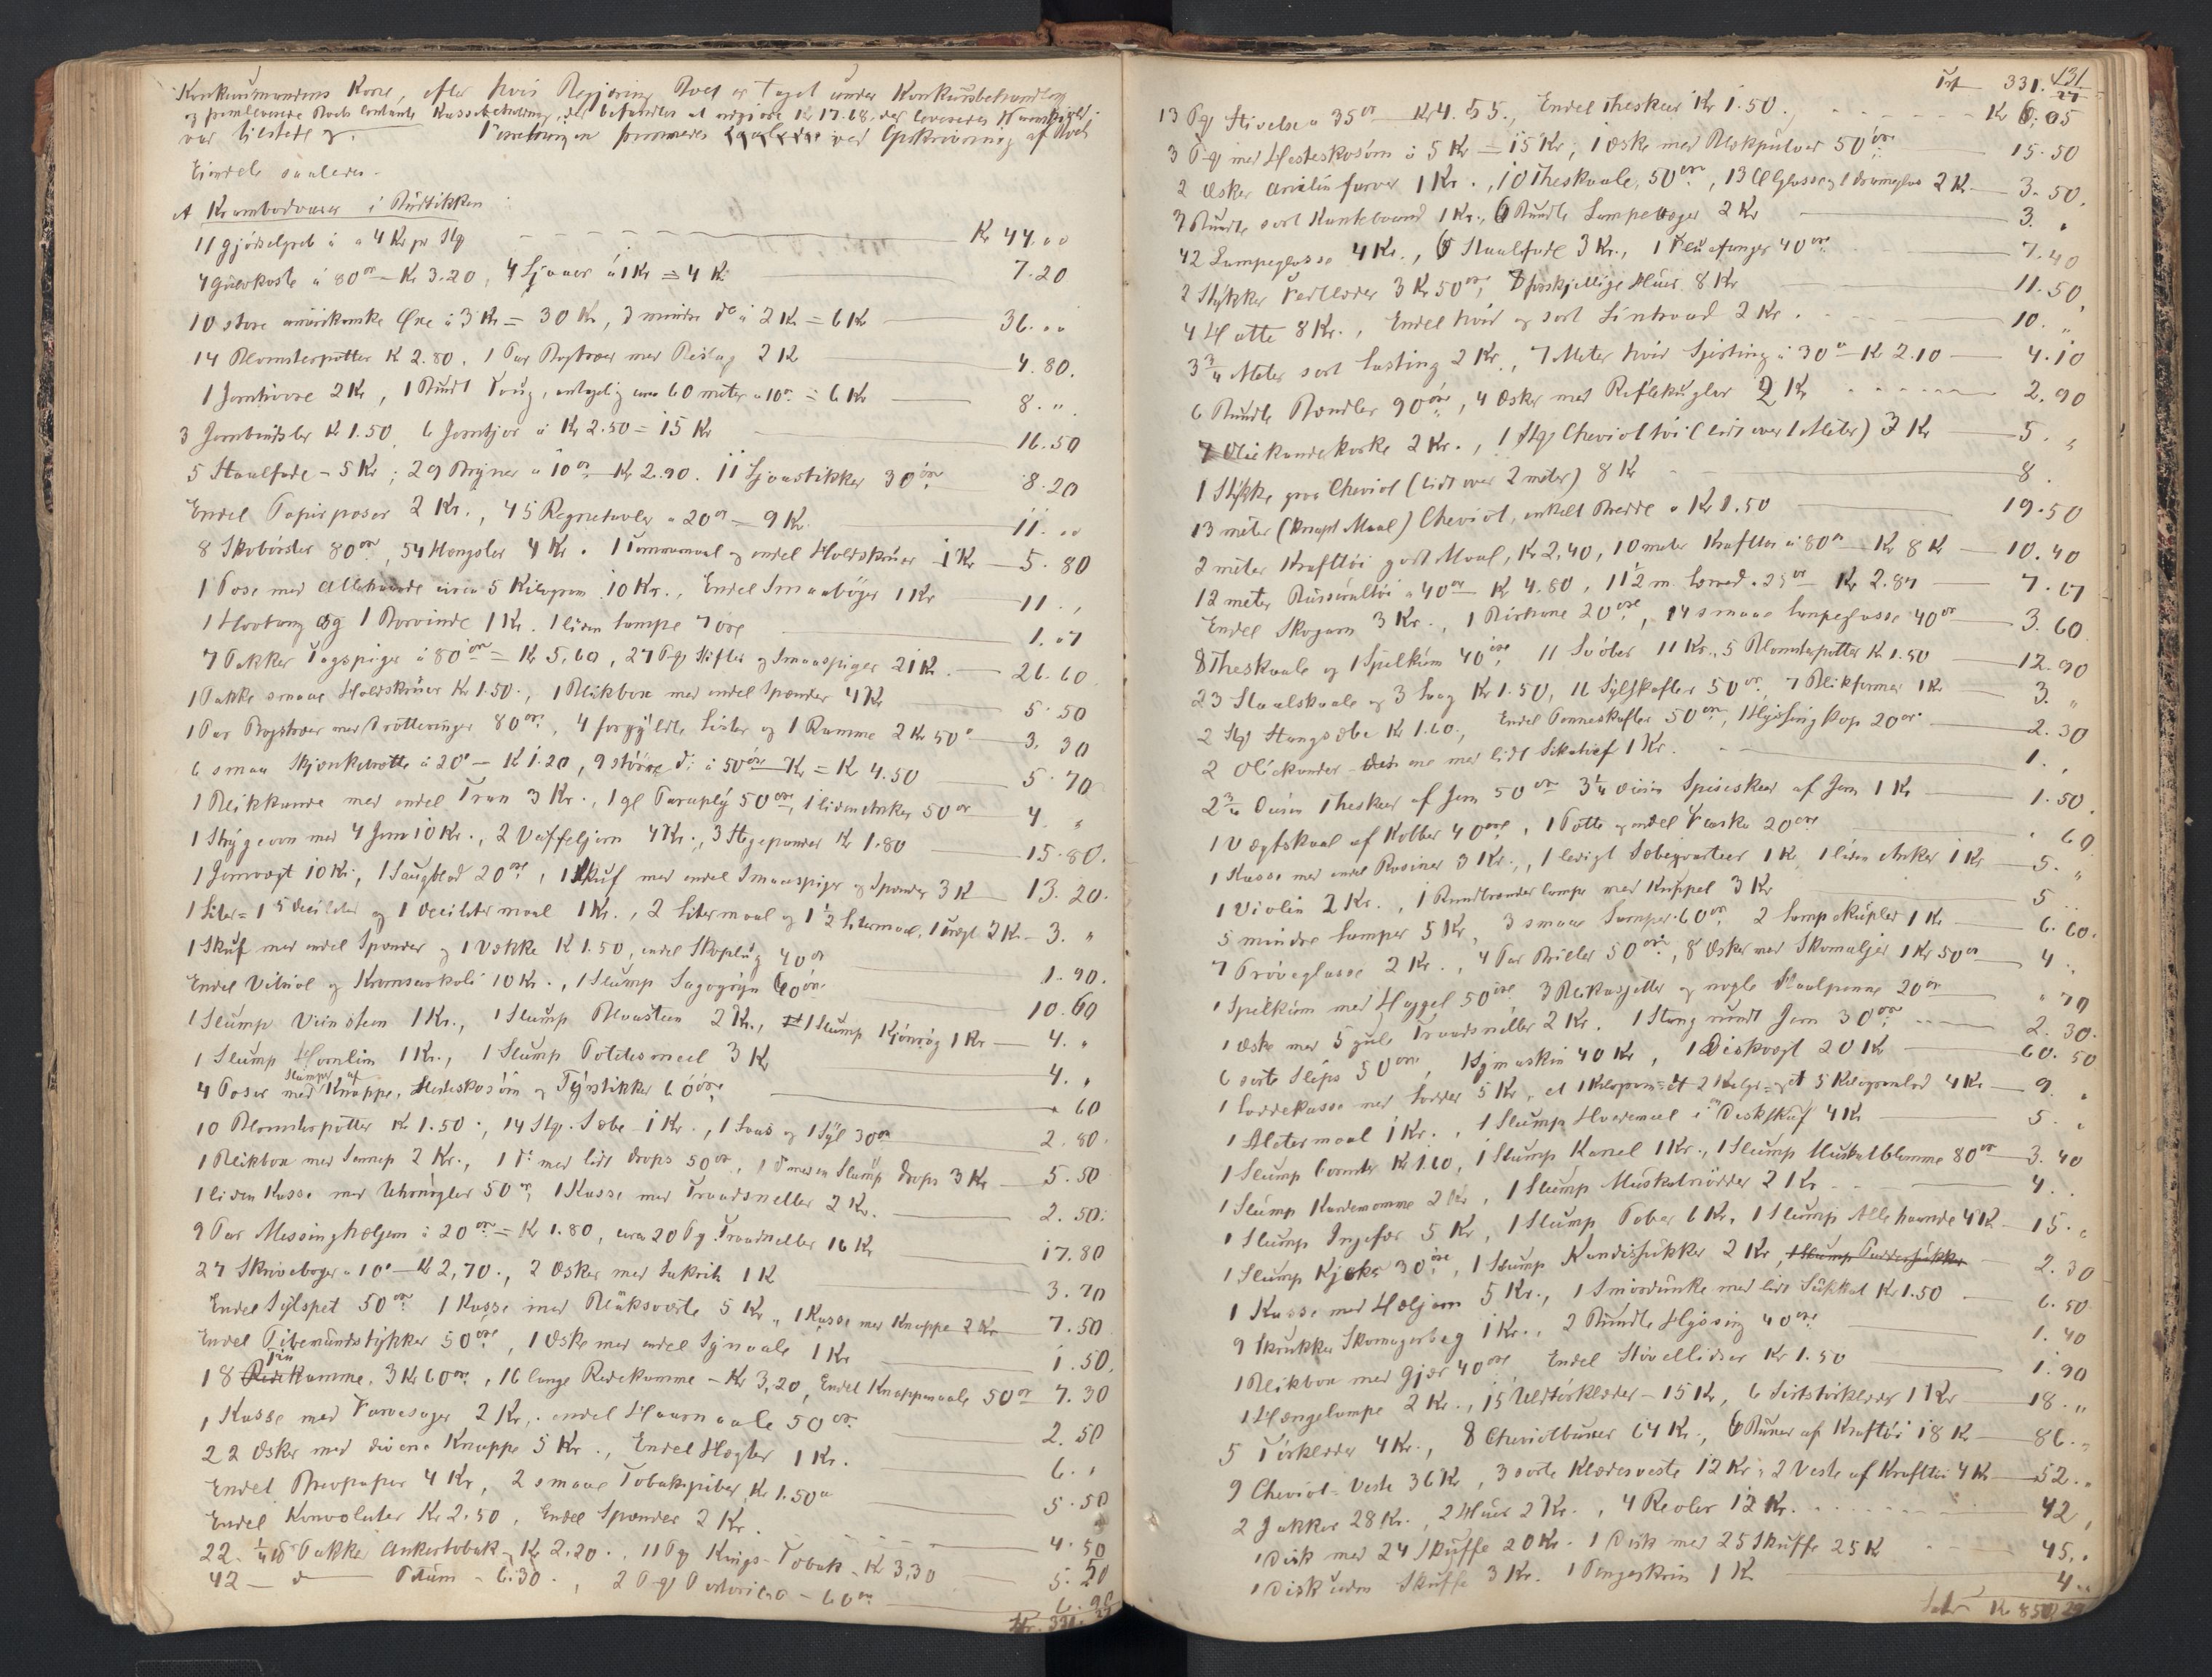 Konkursmandens Kone, efter hvis Begjæring Boet er taget under Konkursbehandling
og fremleverede Boets contante Kassebeholdning, der befandtes at udgjøre Kr 17.68, der leveredes
var tilstede og. Forretningen fremmedes saaledes ved Opskrivning af Boets
Eiendele saaledes.
A Krambodvarer i Butikken
11 gjödselgreb à 4 Kr pr Stk Kr 44.00
4 gulvkoste à 80 ør — Kr 3.20, 4 Ljaaer à 1 Kr = 4 Kr 7.20
10 store amerikanske Øxe à 3 Kr = 30 Kr, 3 mindre do à 2 Kr = 6 Kr 36.00
14 Blomsterpotter K 2.80. 1 Par Bogtræer med Beslag 2 Kr 4.80.
1 Jernhivve 2 Kr, 1 Bundt Toug, antagelig circa 60 meter à 10 ør = 6 Kr 8. "
3 Jernbindsler Kr 1.50, 6 Jerntjor à Kr 2.50 = 15 Kr 16.50
5 Staalfade - 5 Kr; 29 Bryner à 10 ør Kr 2.90. 11 Ljaastikker 30 øre 8.20
Endel Papirposer 2 Kr., 45 Regnetavler à 20 ør = 9 Kr 11.00
8 Skobörster 80 ør, 54 Hængsler 4 Kr. 1 Tommemaal og endel Holdskruer 1 Kr 5.80
1 Pose med Allehaande circa 5 Kilogram 10 Kr., Endel Smaabøger 1 Kr 11.,
1 Hovtang og 1 Borvinde 1 Kr. 1 liden Lampe 7 øre 1.07
7 Pakker Tagspiger à 80 ør = Kr 5,60, 27 Pg Stifter og Smaaspiger 21 Kr. 26.60
1 Pakke smaae Holdskruer Kr 1.50., 1 Blikboxe med endel Spænder 4 Kr 5.50
1 Par Bogtræer med Trætteringer 80 ør, 4 forgyldte Lister og 1 Ramme 2 Kr 50 ø 3.30
6 smaa Skjænketrætte à 20 ø — K 1.20, 9 större do à 50 øre = Kr 4.50 5.70
1 Blikkande med endel Tran 3 Kr., 1 gl Paraply 50 øre, 1 liden Anker 50 ør 4. "
1 Strygeovn med 4 Jern 10 Kr., 2 Vaffeljern 4 Kr., 3 Stegepander Kr 1.80 15.80.
1 Jernvægt 10 Kr, 1 Saugblad 20 øre, 1 Skuf med endel Smaaspiger og Spænder 3 K 13.20.
1 Liter = 1 5 Deciliter og 1 Deciliter maal 1 Kr., 2 Litermaal og 1 1/2 Litermaal, 1 Vægt 2 Kr 3. "
1 Skuf med endel Spænder og 1 Vække K 1.50, endel Skoplug 40 ør 1.90.
Endel Vitriol og Kromsurkali 10 Kr., 1 Slump Sagogryn 60 øre 10.60
1 Slump Viinsteen 1 Kr., 1 Slump Blaasteen 2 Kr., 1 Slump Kjönrög 1 Kr 4. "
1 Slump Hornlim 1 Kr., 1 Slump Potetesmeel 3 Kr 4. "
4 Poser med Slumper af Knappe, Hesteskosøm og Tynstikker 60 øre " 60
10 Blomsterpotter Kr 1.50., 14 Stk. Sæbe 1 Kr., 1 Saas og 1 Syl 30 ør 2.80.
1 Blikbox med Sennep 2 Kr., 1 do med lidt Drops 50 ør, 1 do med en Slump Drops 3 Kr 5.50
1 liden Kasse med Uhrnøgler 50 ør, 1 Kasse med Traadsneller 2 Kr. 2.50.
9 Par Messinghægtjern à 20 ør = Kr 1.80, circa 20 Pg. Traadsneller 16 Kr 17.80
27 Skrivebøger à 10 ø — Kr 2,70., 2 Æsker med Lakrits 1 K 3.70
Endel Sylspet 50 ør 1 Kasse med Buksevæste 5 Kr, 1 Kasse med Knappe 2 Kr 7.50
Endel Pibemundstykker 50 øre, 1 Æske med endel Synaale 1 Kr 1.50.
18 Tin Kamme, 3 Kr 60 ør, 16 lange Redekamme - Kr 3,20, Endel Knappenaale 50 ør 7.30
1 Kasse med Farvesager 2 Kr,. endel Haarnaale 50 ør 2.50
22 Æsker med diverse Knappe 5 Kr., Endel Hægter 1 Kr. 6. "
Endel Brevpapir 4 Kr, 2 smaae Tobakspiber, Kr 1.50 5.50
Endel Konvolutter Kr 2.50, Endel Spænder 2 Kr. 4.50
22. 1/4 ℔ Pakker Ankertobak Kr 2.20., 11 Pg Kings-Tobak - K 3.30 5.50
42 — do — Blum - 6.30., 2 Pg Portorico - 60 ør 6.90
Kr. 331.27
131
Trf 331.27
13 Pg Stivelse à 35 ør Kr 4.55., Endel Theskeer Kr 1.50. Kr 6.05
3 Pg med Hesteskosöm à 5 Kr = 15 Kr; 1 Æske med Blækpulver 50 øre 15.50
2 Æsker Anilinfarver 1 Kr., 10 Theskaale, 50 øre, 13 Ølglasse og 1 Dramglas 2 K 3.50.
3 Bundte sort Kantebaand 1 Kr., 6 Bundte Lampevæger 2 Kr 3. "
42 Lampeglasse 4 Kr., 6 Staalfade 3 Kr., 1 Fluefanger 40 ør 7.40
2 Stykker Vedlæder 3 Kr 50 ør, 8 forskjellige Huer 8 Kr 11.50
4 Hatte 8 Kr., Endel hvid og sort Lintraad 2 Kr. 10. "
3 3/4 Meter sort Lasting 2 Kr., 7 Meter hvid Sjirting à 30 ø — K 2.10 4.10
6 Bundte Bændler 90 øre, 4 Æsker med Riflekugler 2 Kr 2.90
7 Oliekandekorke 2 Kr., 1 Stk Cheviottöi (lidt over 1 Meter) 3 Kr 5. "
1 Stykke graa Cheviot (lidt over 2 meter) 8 Kr 8.
13 meter (knapt Maal) Cheviot, enkelt Bredde à Kr 1.50 19.50
3 meter Krafttöi godt Maal, Kr 2,40, 10 meter Krafttöi à 80 ør — Kr 8 K 10.40
12 meter Busserultöi à 40 ør K 4.80, 11 1/2 m. Lærred à 25 ør Kr 2.87 7.67
Endel Skogarn 3 Kr., 1 Börkane 20 øre, 14 smaae Lampeglasse 40 ør 3.60
8 Theskaale og 1 Spilkum 40 øre, 11 Svøber 11 Kr., 5 Blomsterpotter Kr 1.50 12.90
23 Staalskaale og 3 Laag Kr 1.50, 16 Sylskafter 50 ør, 7 Blikformer 1 Kr 3. "
2 Stk Stangsæbe Kr 1.60., Endel Penneskafter 50 øre, 1 Hyssing Kop 20 ør. 2.30
2 Oliekander - den ene med lidt Sikativ 1 Kr. 1. "
2 3/4 Dusin Theskeer af Jern 50 ør 3 1/4 Dusin Spiseskeer af Jern 1 Kr 1.50
1 Vægtskaal af Kobber 40 øre, 1 Potte og endel Flaske 20 øre " 60
1 Kasse med endel Rosiner 3 Kr., 1 ledigt Sæbeqvarteer 1 Kr 1 liden Anker 1 Kr 5. "
1 Violin 2 Kr., 1 Rundbrænder Lampe med Kuppel 3 Kr 5 ..
5 mindre Lamper 5 Kr, 3 smaae Lamper 60 ør, 2 Lampekupler 1 Kr 6.60.
7 Pröveglasse 2 Kr., 4 Par Briller 50 ør, 8 Æsker med Skomaljer 1 Kr 50 ør 4 ..
1 Spilkum med Haggel 50 øre, 3 Blikassjetter og nogle Staalpenne 20 ør " 70
1 Æske med 5 gule Traadsneller 2 Kr. 1 Stang rundt Jern 30 ør 2.30.
6 sorte Slips 50 øre, 1 Symaskin 40 Kr, 1 Diskvægt 20 Kr 60.50
1 Loddekasse med Lodder 5 Kr, et 1 Kilogram - et 2 Kilogr - og et 5 Kilogramlod 4 Kr 9. "
1 Aletermaal 1 Kr., 1 Slump Hvedemeel i en Diskskuf 4 Kr 5. "
1 Slump Corender Kr 1.60, 1 Slump Kanel 1 Kr., 1 Slump Muskatblomme 80 ør 3.40
1 Slump Kardemomme 2 Kr, 1 Slump Muskatnödder 2 Kr 4. .
1 Slump Ingefær 5 Kr, 1 Slump Peber 6 Kr, 1 Slump Allehaande 4 Kr 15. "
1 Slump Kjeks 30 øre, 1 Slump Kandissukker 2 Kr, 1 Slump Puddersukker 2.30
1 Kasse med Hæljern 5 Kr., 1 Smördunke med lidt Sukkat Kr 1.50 6.50
9 Skrukker Skomagerbeg 1 Kr., 2 Bundte Hyssing 40 øre 1.40
1 Blikbox med gjær 40 øre, Endel Stövellidser Kr 1.50 1.90
1 Hængelampe 2 Kr., 15 Uldtörklæder - 15 Kr, 6 Sirtstörklæder 1 Kr 18. "
5 Törklæder 4 Kr., 8 Cheviotbuxer 64 Kr., 6 Buxer af Krafttöi 18 Kr 86. "
9 Cheviot-Veste 36 Kr, 3 sorte Klædesveste 12 Kr, 2 Veste af Krafttöi 4 Kr 52. "
2 Jakker 28 Kr., 2 Huer 2 Kr., 4 Reoler 12 Kr. 42 ,
1 Disk med 24 Skuffe 20 Kr. 1 Disk med 25 Skuffe 25 K 45..
1 Disk uden Skuffe 3 Kr. 1 Pengeskrin 1 K 4 ..
Lateris Kr 850.29